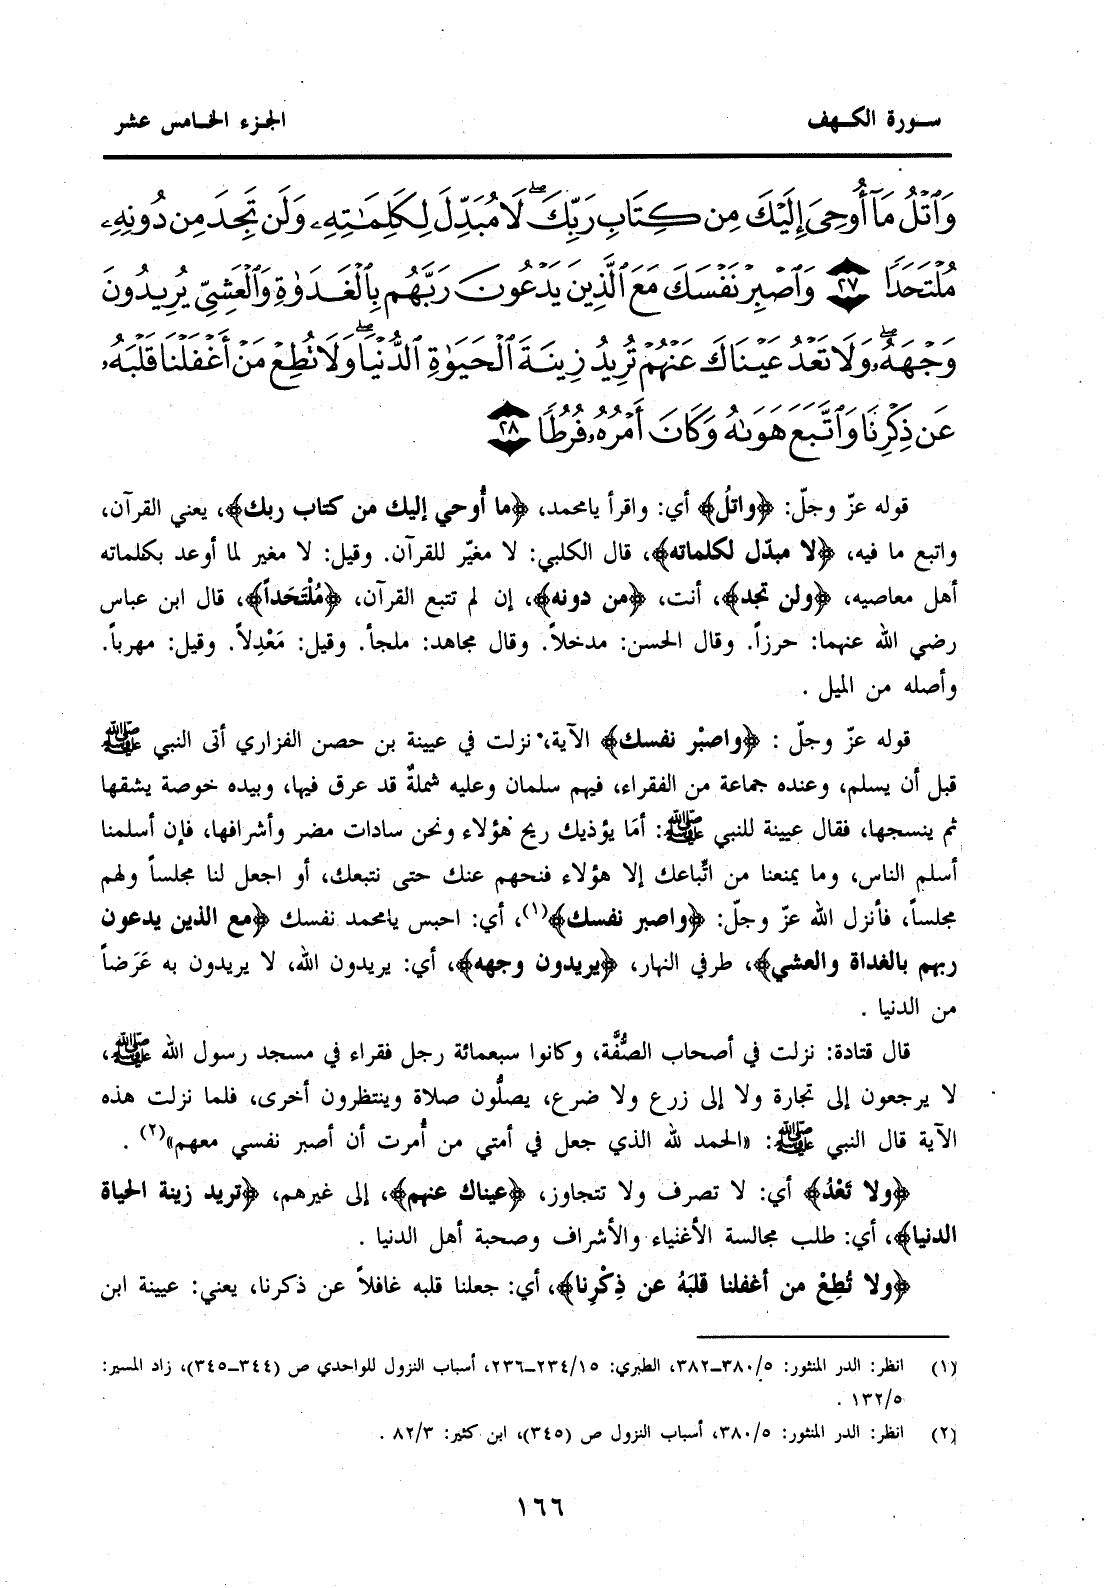 سورة الكهف
الجزء الخامس عشر
وَٱتْلُ مَآ أُوحِىَ إِلَيْكَ مِن كِتَابِ رَبِّكَ ۖ لَا مُبَدِّلَ لِكَلِمَـٰتِهِۦ وَلَن تَجِدَ مِن دُونِهِۦ
مُلْتَحَدًا ٢٧ وَٱصْبِرْ نَفْسَكَ مَعَ ٱلَّذِينَ يَدْعُونَ رَبَّهُم بِٱلْغَدَوٰةِ وَٱلْعَشِىِّ يُرِيدُونَ
وَجْهَهُۥ ۖ وَلَا تَعْدُ عَيْنَاكَ عَنْهُمْ تُرِيدُ زِينَةَ ٱلْحَيَوٰةِ ٱلدُّنْيَا ۖ وَلَا تُطِعْ مَنْ أَغْفَلْنَا قَلْبَهُۥ
عَن ذِكْرِنَا وَٱتَّبَعَ هَوَىٰهُ وَكَانَ أَمْرُهُۥ فُرُطًا ٢٨
قوله عزّ وجلّ: ﴿واتلُ﴾ أي: واقرأ يا محمد، ﴿ما أُوحي إليك من كتاب ربك﴾، يعني القرآن،
واتبع ما فيه، ﴿لا مبدّل لكلماته﴾، قال الكلبي: لا مغيّر للقرآن. وقيل: لا مغير لما أوعد بكلماته
أهل معاصيه، ﴿ولن تجد﴾، أنت، ﴿من دونه﴾، إن لم تتبع القرآن، ﴿مُلْتَحَداً﴾، قال ابن عباس
رضي الله عنهما: حرزاً. وقال الحسن: مدخلاً. وقال مجاهد: ملجأ. وقيل: مَعْدِلاً. وقيل: مهرباً.
وأصله من الميل .
قوله عزّ وجلّ : ﴿واصبْر نفسك﴾ الآية، نزلت في عيينة بن حصن الفزاري أتى النبي ﷺ
قبل أن يسلم، وعنده جماعة من الفقراء، فيهم سلمان وعليه شملةٌ قد عرق فيها، وبيده خوصة يشقها
ثم ينسجها، فقال عيينة للنبي ﷺ: أمَا يؤذيك ريح هؤلاء ونحن سادات مضر وأشرافها، فإن أسلمنا
أسلم الناس، وما يمنعنا من اتِّباعك إلا هؤلاء فنحهم عنك حتى نتبعك، أو اجعل لنا مجلساً ولهم
مجلساً، فأنزل الله عزّ وجلّ: ﴿واصبر نفسك﴾(١)، أي: احبس يا محمد نفسك ﴿مع الذين يدعون
ربهم بالغداة والعشي﴾، طرفي النهار، ﴿يريدون وجهه﴾، أي: يريدون الله، لا يريدون به عَرَضاً
من الدنيا .
قال قتادة: نزلت في أصحاب الصُّفَّة، وكانوا سبعمائة رجل فقراء في مسجد رسول الله ﷺ،
لا يرجعون إلى تجارة ولا إلى زرع ولا ضرع، يصلُّون صلاة وينتظرون أخرى، فلما نزلت هذه
الآية قال النبي ﷺ: «الحمد لله الذي جعل في أمتي من أُمرت أن أصبر نفسي معهم»(٢) .
﴿ولا تَعْدُ﴾ أي: لا تصرف ولا تتجاوز، ﴿عيناك عنهم﴾، إلى غيرهم، ﴿تريد زينة الحياة
الدنيا﴾، أي: طلب مجالسة الأغنياء والأشراف وصحبة أهل الدنيا .
﴿ولا تُطِعْ من أغفلنا قلبَهُ عن ذِكْرِنا﴾، أي: جعلنا قلبه غافلاً عن ذكرنا، يعني: عيينة ابن
(١) انظر: الدر المنثور: ٣٨٠/٥ــ٣٨٢، الطبري: ٢٣٤/١٥ــ٢٣٦، أسباب النزول للواحدي ص (٣٤٤ــ٣٤٥)، زاد المسير:
١٣٢/٥ .
(٢) انظر: الدر المنثور: ٣٨٠/٥، أسباب النزول ص (٣٤٥)، ابن كثير: ٨٢/٣ .
١٦٦